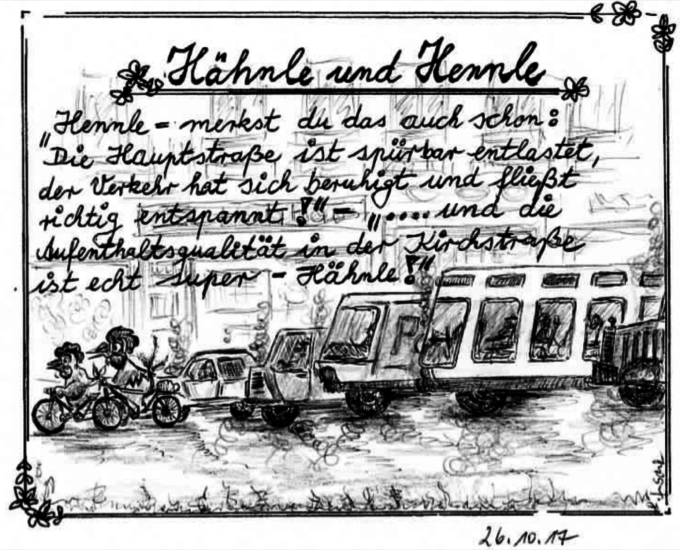 Hähnle und Hennle
Hennle - merkst du das auch schon:
"Die Hauptstraße ist spürbar entlastet,
der Verkehr hat sich beruhigt und fließt
richtig entspannt!" - "....und die
Aufenthaltsqualität in der Kirchstraße
ist echt super - Hähnle!"
P
26.10.17